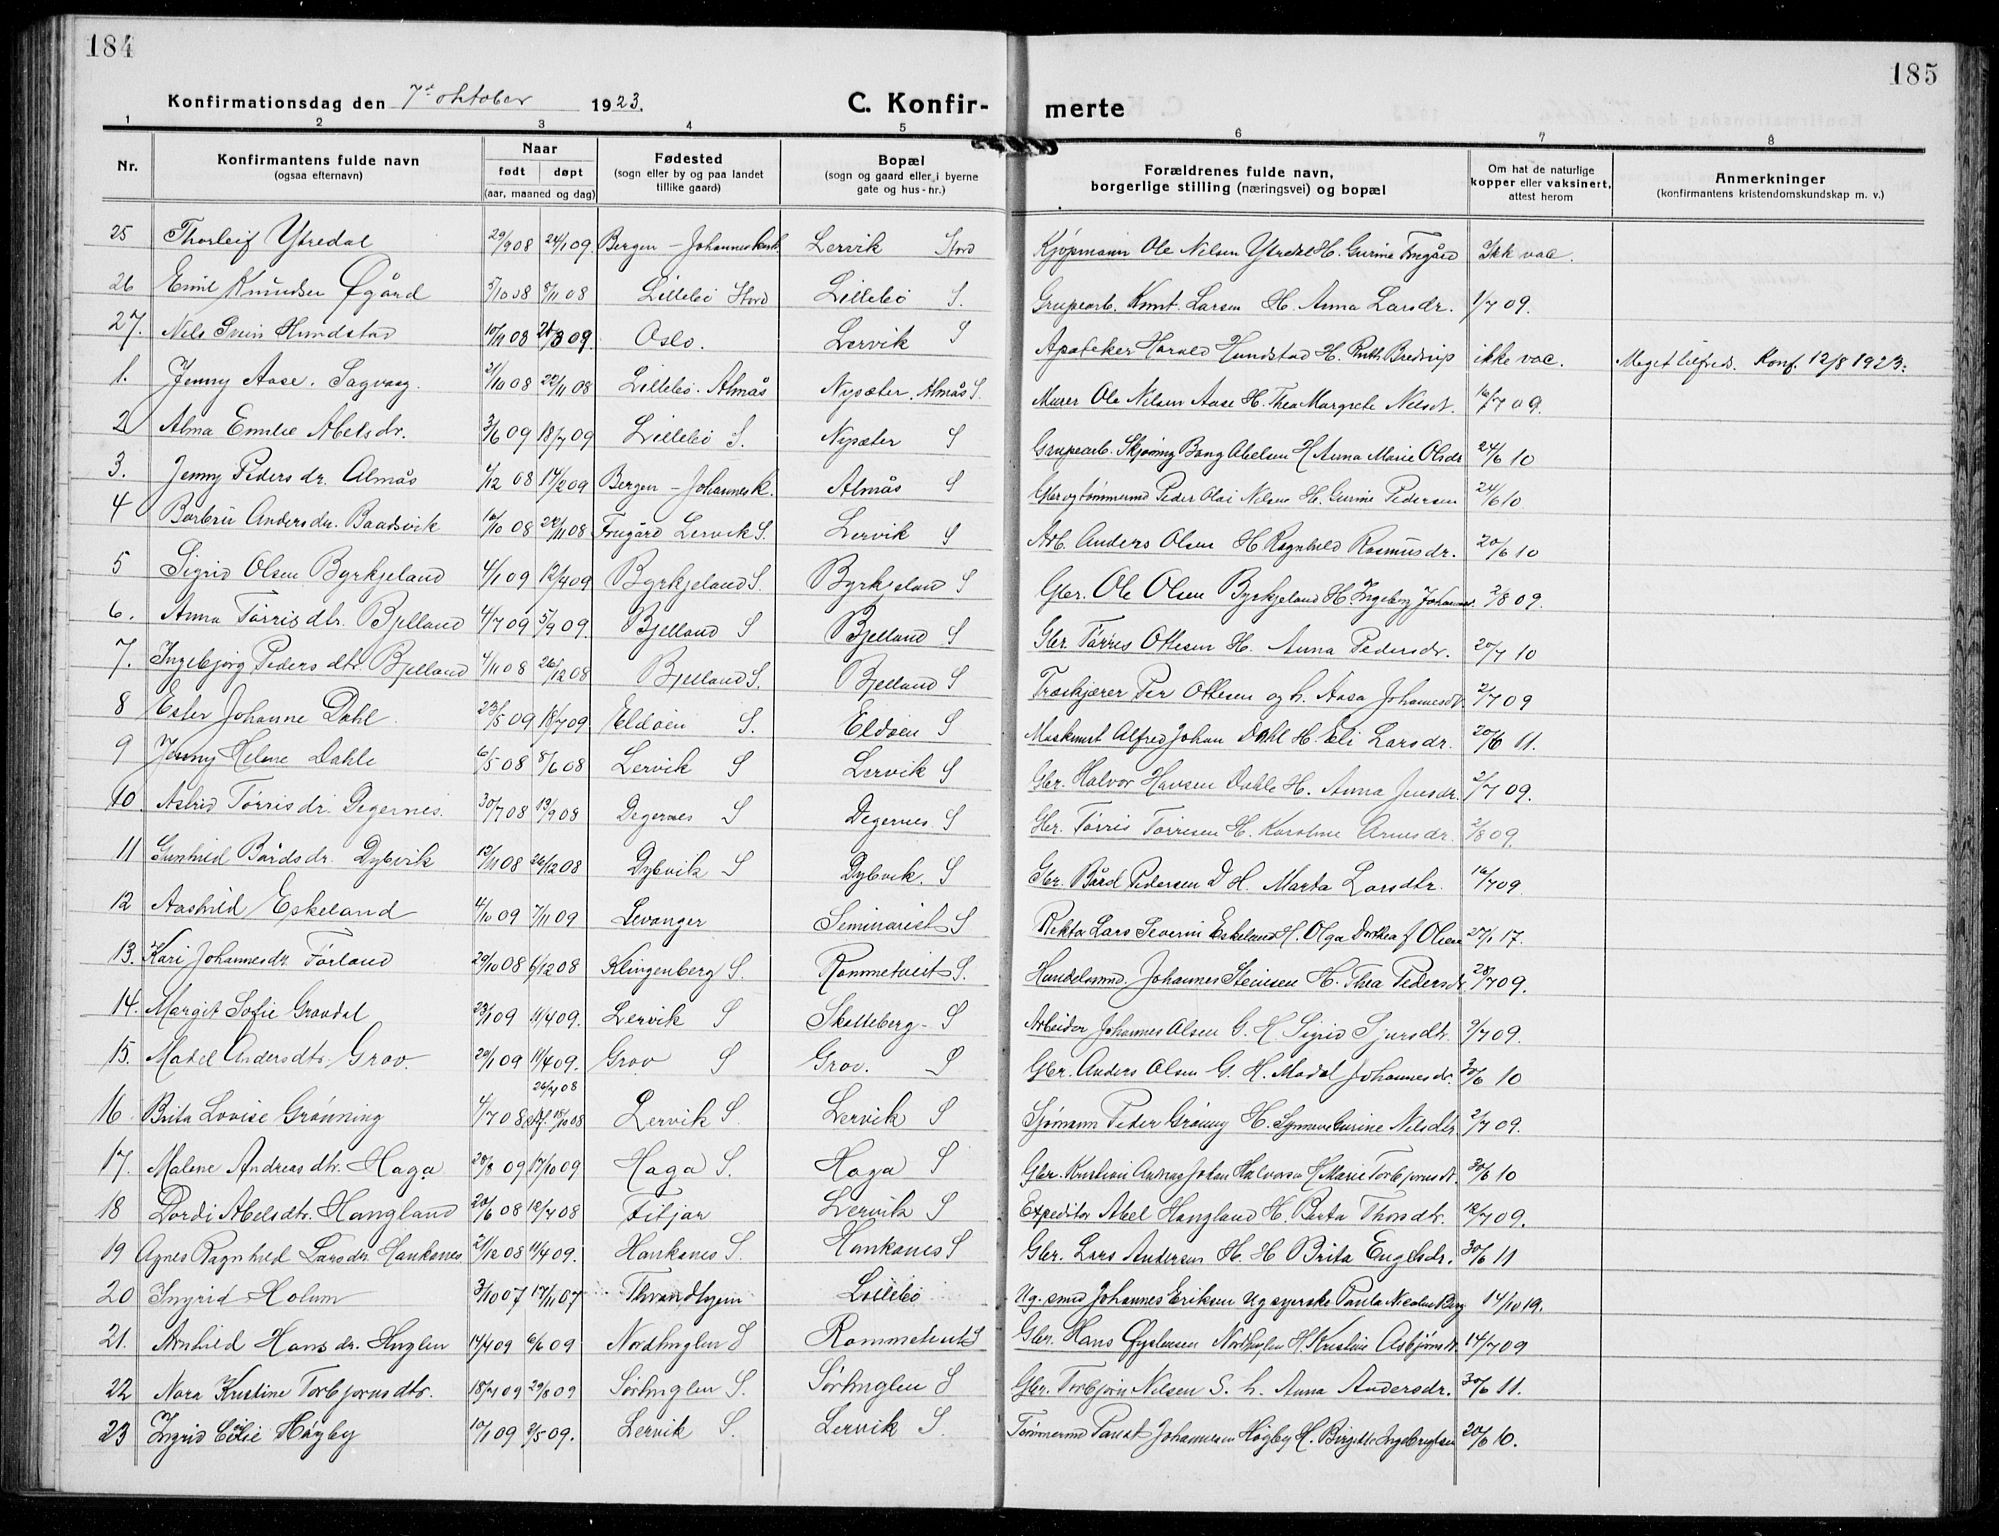 184
185
Konfirmationsdag den 7de oktober 1923.
C. Konfir- merte
1 2 3 4 5 6 7 8
Nr. Konfirmantens fulde navn (ogsaa efternavn) Naar født døpt (aar, maaned og dag) Fødested (sogn eller by og paa landet tillike gaard) Bopæl (sogn og gaard eller i byerne gate og hus-nr.) Forældrenes fulde navn, borgerlige stilling (næringsvei) og bopæl Om hat de naturlige kopper eller vaksinert, attest herom Anmerkninger (konfirmantens kristendomskundskap m. v.)
25 Thorleif Ytredal 29/9 08 24/1 09. Bergen - Johanneskirk. Lervik Stord Kjøpmann Ole Nilsen Ytredal H. Gurine Frugård Ikk vac.
26 Emil Knudsen Øgård 5/10 08 8/11 08 Lillebö Stord Lillebö S. Grupearb. Knut Larsen H. Anna Larsdr. 1/7 09.
27. Nils Svein Hundstad 10/11 08 21/3 09. Oslo. Lervik S Apoteker Harald Hundstad H. Ruth Bredrup ikke vac. Meget tilfreds. Konf. 12/8 1923.
1. Jenny Aase. Sagvaag. 21/10 08 22/11 08 Lillebö. Almås Nysæter. Almås S. Murer Ole Nilsen Aase H. Thea Margrete Nilsdt. 16/7 09.
2 Alma Emilie Abelsdr. 3/6 09 18/7 09 Lillebö S. Nysæter S Grupearb. Skjöning Bang Abelsen H Anna Marie Olsdr 24/6 10
3. Jenny Pedersdr. Almås 4/12 08 14/2 09 Bergen - Johannesk. Almås S Gbr og tömmermd Peder Olai Nilsen H. Gurine Pedersen 24/6 10
4 Barbru Andersdr. Baadsvik 16/10 08 22/11 08 Frugård Lervik S. Lervik S Arb. Anders Olsen H Ragnhild Rasmusdr. 20/6 10
5 Sigrid Olsen Byrkjeland 4/1 09 12/4 09 Byrkjeland S. Byrkjeland S Gbr. Ole Olsen Byrkjeland H. Ingeborg Johannes. 2/8 09.
6. Anna Tørrisdtr. Bjelland 4/7 09 5/9 09. Bjelland S Bjelland S Gbr. Tørres Ottesen H. Anna Pedersdr. 20/7 10
7. Ingebjørg Pedersdtr. Bjelland 4/11 08 26/12 08 Bjelland S. Bjelland S Træskjærer Per Ottesen og h. Aasa Johannesdt. 2/7 09
8 Ester Johanne Dahl 23/5 09 18/7 09. Eldøen S. Eldøen S Maskinist Alfred Johan Dahl H. Eli Larsdr. 20/6 11.
9 Jenny Helene Dahle 6/5 08 8/6 08 Lervik S Lervik S Gbr. Halvor Hansen Dahle H. Anna Jensdr. 2/7 09.
10. Astrid Tørrisdr. Degernes. 30/7 08 13/9 08 Degernes S Degernes. S Gbr. Tørris Tørrisen H. Karoline Arnesdr. 2/8 09.
11 Gunhild Bårdsdr. Dybvik 13/11 08 26/12 08 Dybvik S Dybvik. S Gbr. Bård Pedersen D H. Marta Larsdtr. 16/7 09.
12 Aashild Eskeland 4/10 09 7/11 09 Levanger Seminariet S Rektor Lars Severin Eskeland H. Olga Dorthea f Olsen 27/1 17.
13. Kari Johannesdr. Førland 29/10 08 6/12 08 Klingenberg S. Rommetveit S. Handelsmnd. Johannes Steinsen H. Thea Pedersdr. 28/7 09.
14. Margit Sofie Grovdal 23/1 09 11/4 09. Lervik S Skotteberg - S Arbeider Johannes Olsen G. H Sigrid Sjursdtr. 9/7 09.
15. Madel Andersdtr. Grov. 20/1 09 11/4 09. Grov S Grov. S Gbr. Anders Olsen G. H. Madel Johannesdr. 30/6 10
16. Brita Lovise Grönning 4/7 08 26/7 08 stf. 18/10 08 Lervik S. Lervik S Sjömann Peder Gröning H. Synnøve Gurine Nilsdtr 2/7 09.
17. Malene Andreasdtr. Haga 28/8 09 17/10 09 Haga S. Haga S Gbr. Kristian Andreas Johan Halvorsen H Marie Torbjørnsdt. 30/6 10
18 Dordi Abelsdtr. Hangland 20/6 08 12/7 08 Fitjar Lervik S Expeditør Abel Hangland H. Berta Thorsdtr. 12/7 09.
19 Agnes Ragnhild Larsdr. Hankanes 21/12 08 11/4 09. Hankanes S. Hankanes S Gbr. Lars Andersen H. H Brita Engelsdr. 30/6 11
20 Ingrid Holum 3/10 07 17/11 07 Throndhjem Lillebö Ug. smed Johannes Eriksen ug syerske Paula Nicoline Berg 14/10 19.
21. Arnhild Hansdr. Huglen 14/4 09 6/6 09 Nordhuglen S Rommetveit S Gbr. Hans Øysteinsen Nordhuglen H. Kristine Asbjørnsdt. 14/7 09
22 Nora Kristine Torbjørnsdtr. 18/7 09 29/8 09 Sörhuglen S. Sörhuglen S Gbr. Torbjørn Nilsen S. h. Anna Andersdr. 30/6 11.
23 Ingrid Høgby 10/1 09 2/5 09. Lervik S. Lervik S. Tömmermd Johannesen Høgby H. Birgitte Ingebrigtsen 20/6 10.